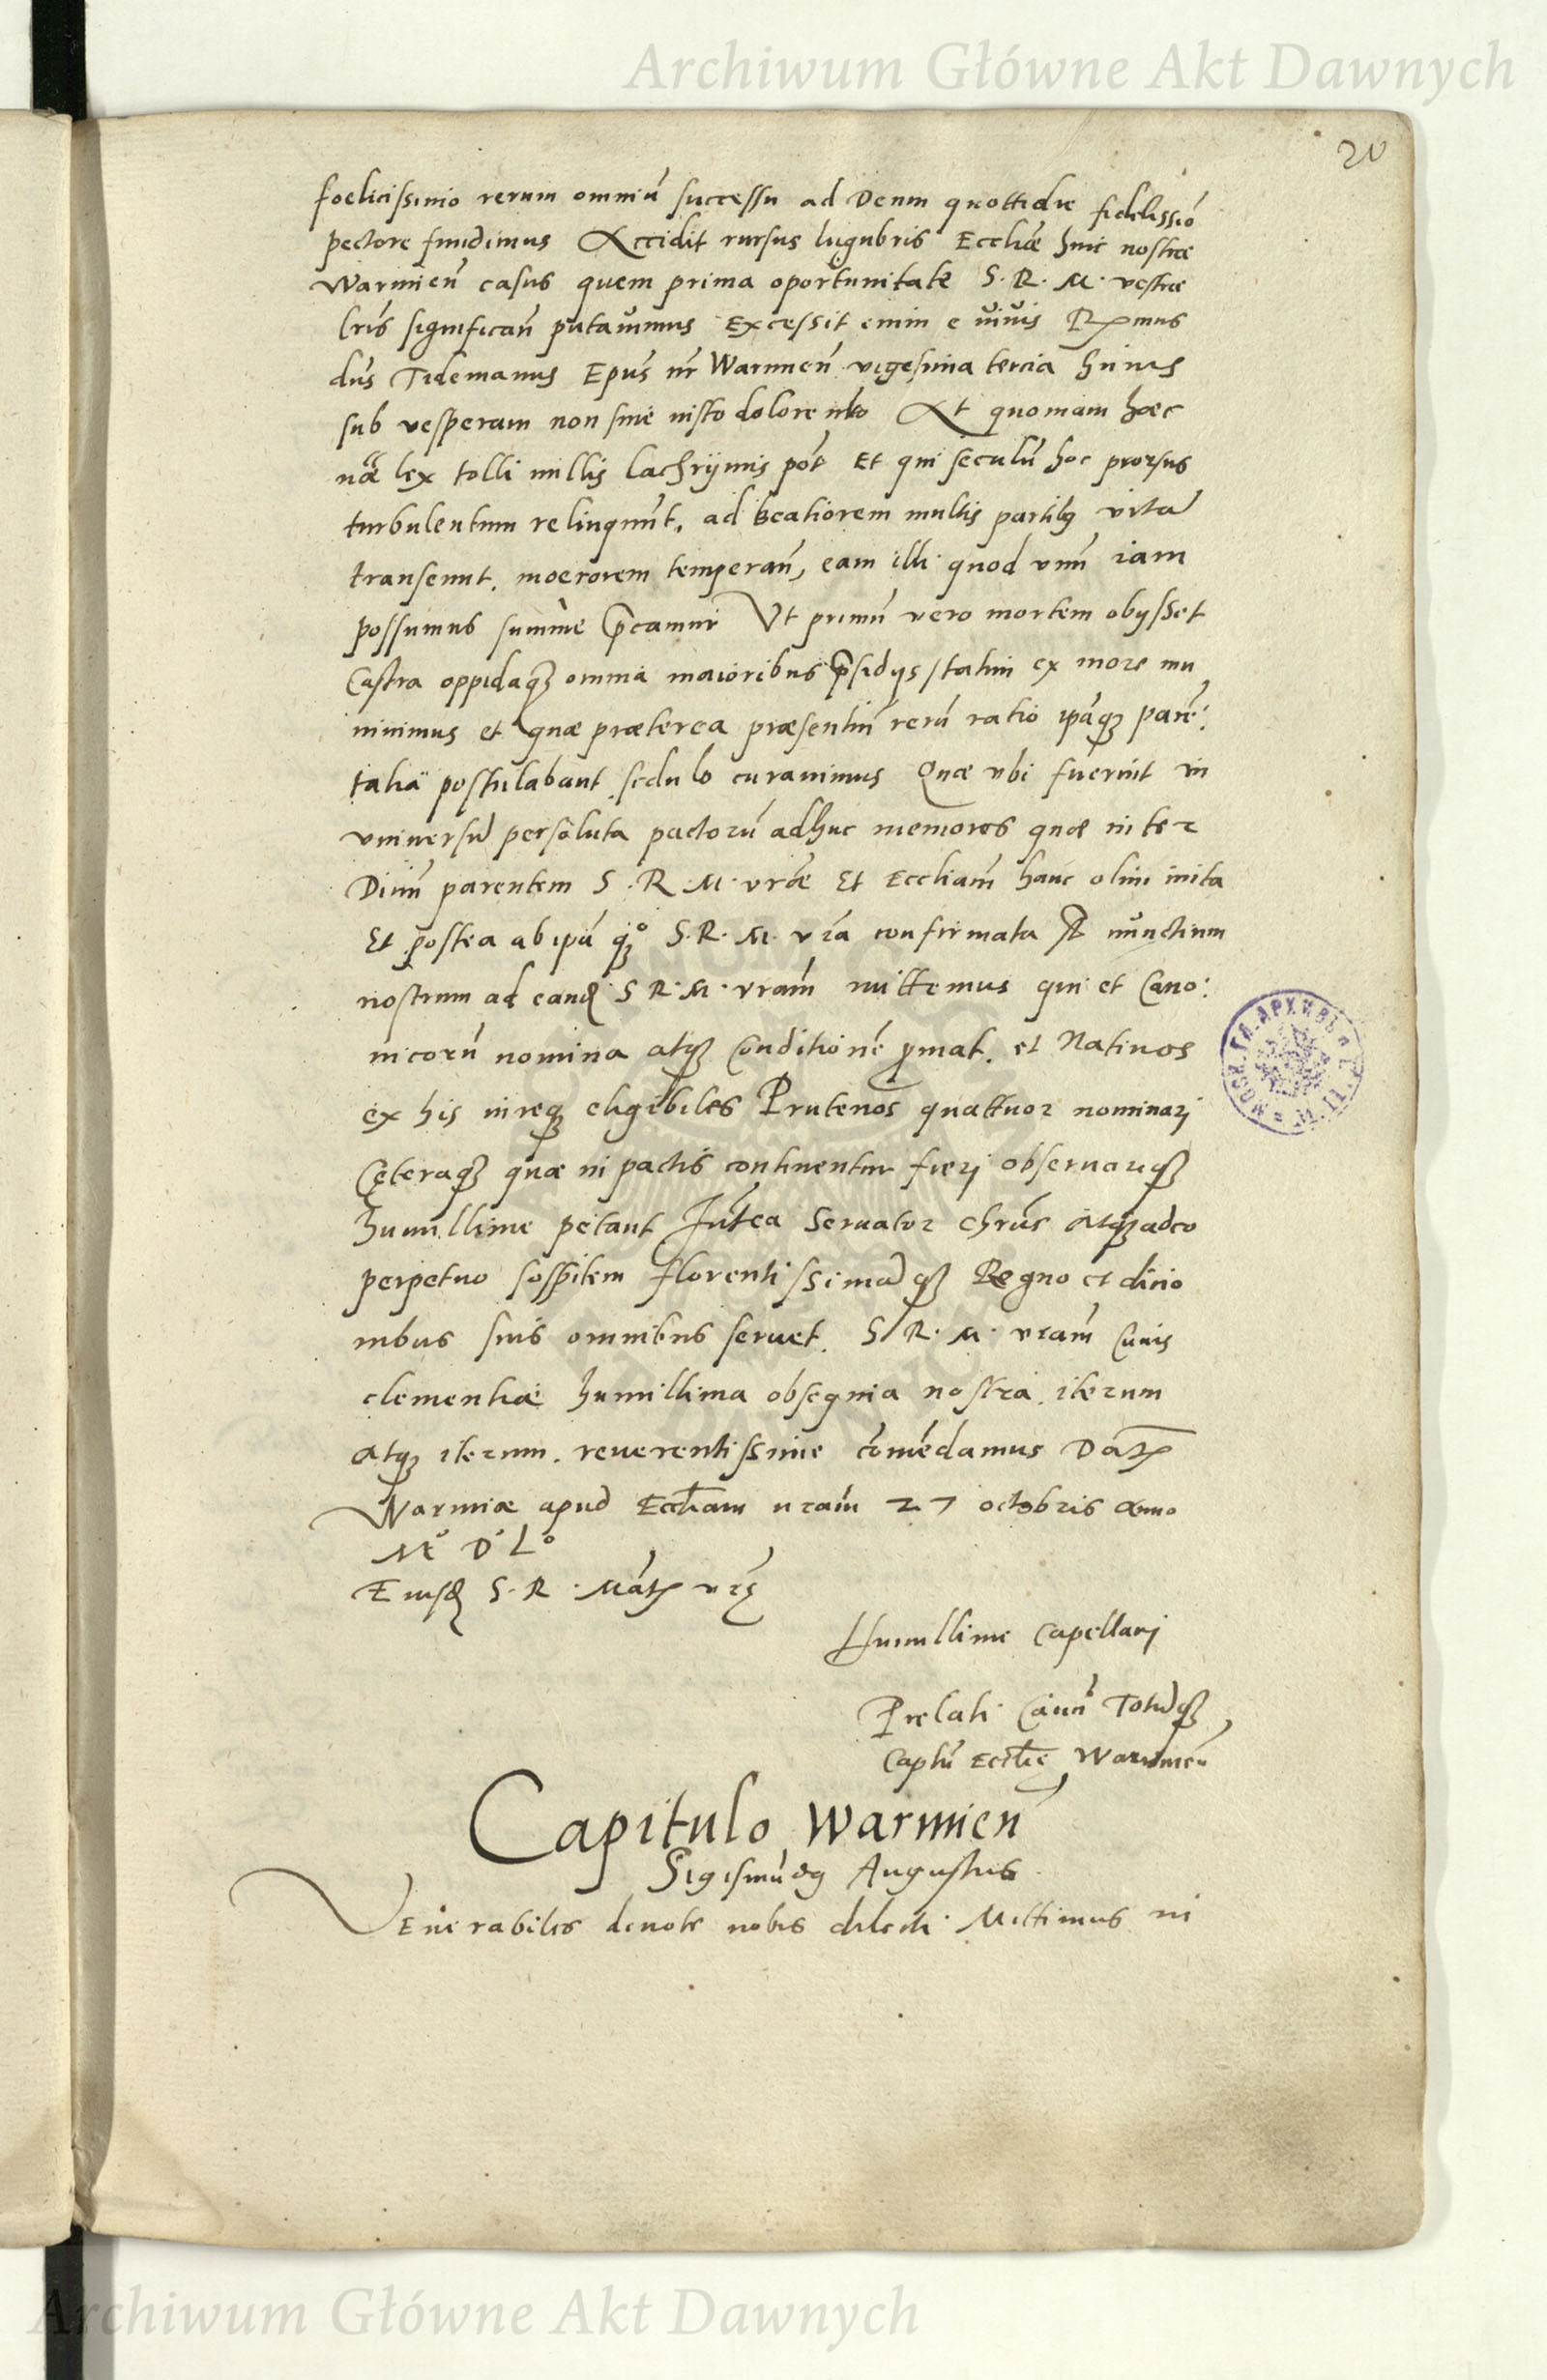 Archiwum Główne Akt Dawnych
20
foelicissimo rerum omniũ successu ad Deum quottidie fidelissiõ
pectore fundimus Accidit rursus lugubris Eccliæ huic nostræ
Warmieñ casus quem prima oportunitate S. R. M. vestræ
lris significañ putavimus Excessit enim e vivis Rmus
dñs Tidemanus Epũs nr Warmieñ vigesima tercia huius
sub vesperam non sine iusto dolore nro At quoniam hæc
næ lex tolli nullis lachrÿmis pot Et qui seculũ hoc prorsus
turbulentum relinquunt, ad beatiorem multis partibꝫ vitã
transeunt, moerorem temperañ, eam illi quod unũ iam
possumus summe p̃camur Vt primũ vero mortem obijsset
Castra oppidaqꝫ omnia maioribus p̃sidijs statim ex more mu
nivimus et quæ præterea præsentiũ rerũ ratio ipãqꝫ parẽ:
talia postulabant sedulo curavimus Quæ ubi fuerint in
universũ persoluta pactorũ adhuc memores quæ inter
Divũ parentem S. R. M. vræ Et Eccliam hanc olim inita
Et postea ab ipã qꝫ S. R. M. vra confirmata st nunctium
nostrum ad eandẽ S. R. M. vram mittemus qui et Cano:
nicorũ nomina atqꝫ Conditionẽ p̃mat, et Nativos
ex his inreqꝫ eligibiles Prutenos quattuor nominarj
Ceteraqꝫ quæ in pactis continentur fierj observariqꝫ
humillime petant Intea Servator Chrũs atqꝫ adeo
perpetuo sospitem florentissimãqꝫ Regno et dicio
nibus suis omnibus servet. S. R. M. vram Cuius
clementiæ humillima obsequia nostra iterum
atqꝫ iterum, reverentissime cõmẽdamus Dat
Warmiæ apud Eccliam nram 27 octobris anno
M° D° L°
Eiusdẽ S. R. Mat vrę
Humillime Capellanj
Prelati Cañ Totũqꝫ
Caplũ Eccliæ Warmieñ
Capitulo Warmieñ
Sigismũdꝰ Augustus
Venerabiles devote nobis dilecti Mittimus in
Archiwum Główne Akt Dawnych